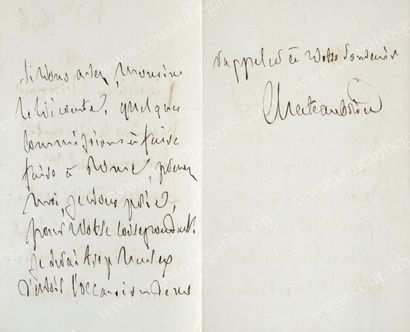 si vous avez, Monsieur
le Vicomte, quelques
commissions à faire
faire à Rome, prenez
moi, je vous prie,
pour votre correspondant.
je serai trop heureux
d'avoir l'occasion de me
rappeler à votre souvenir
Chateaubriand
www.coutaubegarie.com